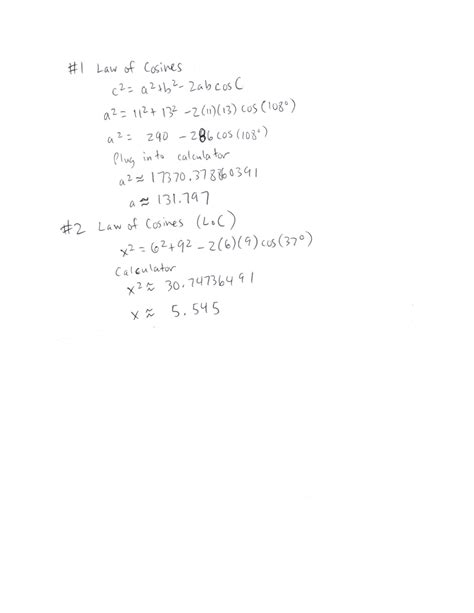 #1 Law of Cosines
c² = a²+b² - 2ab cos C
a² = 11² + 13² - 2(11)(13) cos(108°)
a² = 290 - 286 cos(108°)
Plug into calculator
a² ≈ 17370.37860391
a ≈ 131.797
#2 Law of Cosines (LoC)
x² = 6² + 9² - 2(6)(9) cos(37°)
Calculator
x² ≈ 30.74736491
x ≈ 5.545